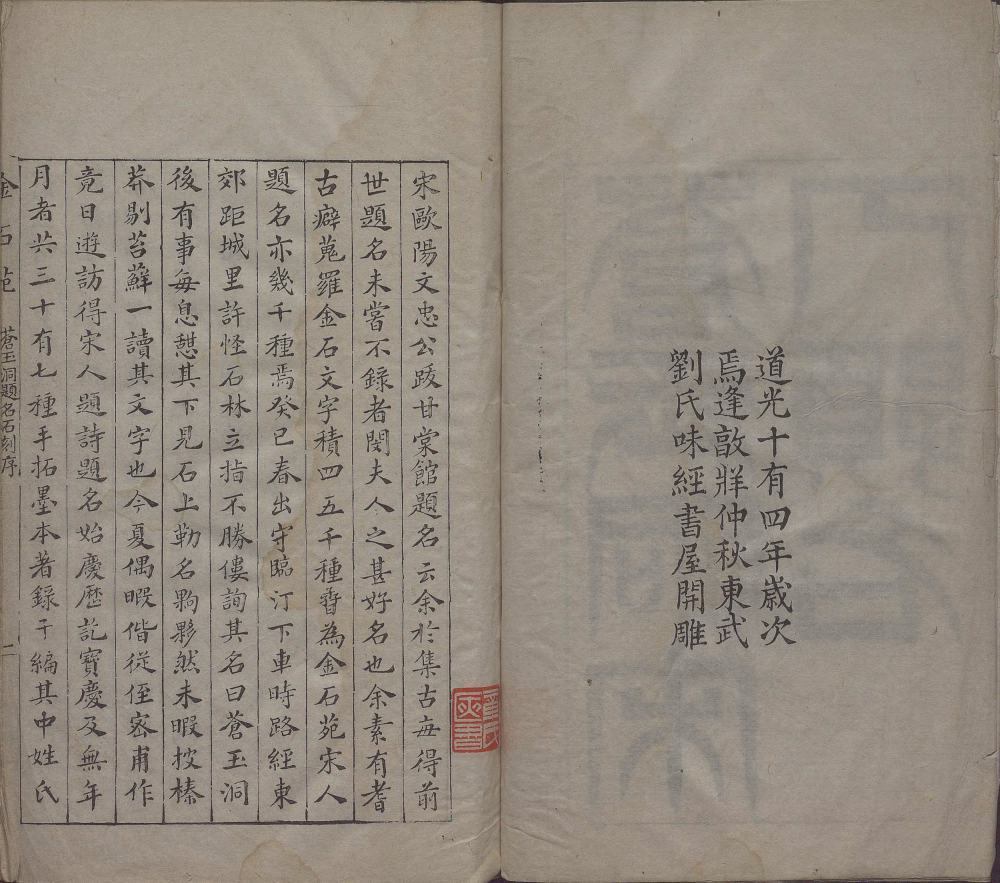 道光十有四年歲次
焉逢敦牂仲秋東武
劉氏味經書屋開雕
宋歐陽文忠公跋甘棠館題名云余於集古每得前
世題名未嘗不錄者閔夫人之甚好名也余素有耆
古癖蒐羅金石文字積四五千種晉為金石苑宋人
題名亦幾千種焉癸巳春出守臨汀下車時路經東
郊距城里許怪石林立指不勝僂詢其名曰蒼玉洞
後有事每息憇其下見石上勒名夥夥然未暇披榛
莽剔苔蘚一讀其文字也今夏偶暇偕從侄宻甫作
竟日遊訪得宋人題詩題名始慶歷訖寶慶及無年
月者共三十有七種手拓墨本著錄于編其中姓氏
金石苑 蒼玉洞題名石刻序 二